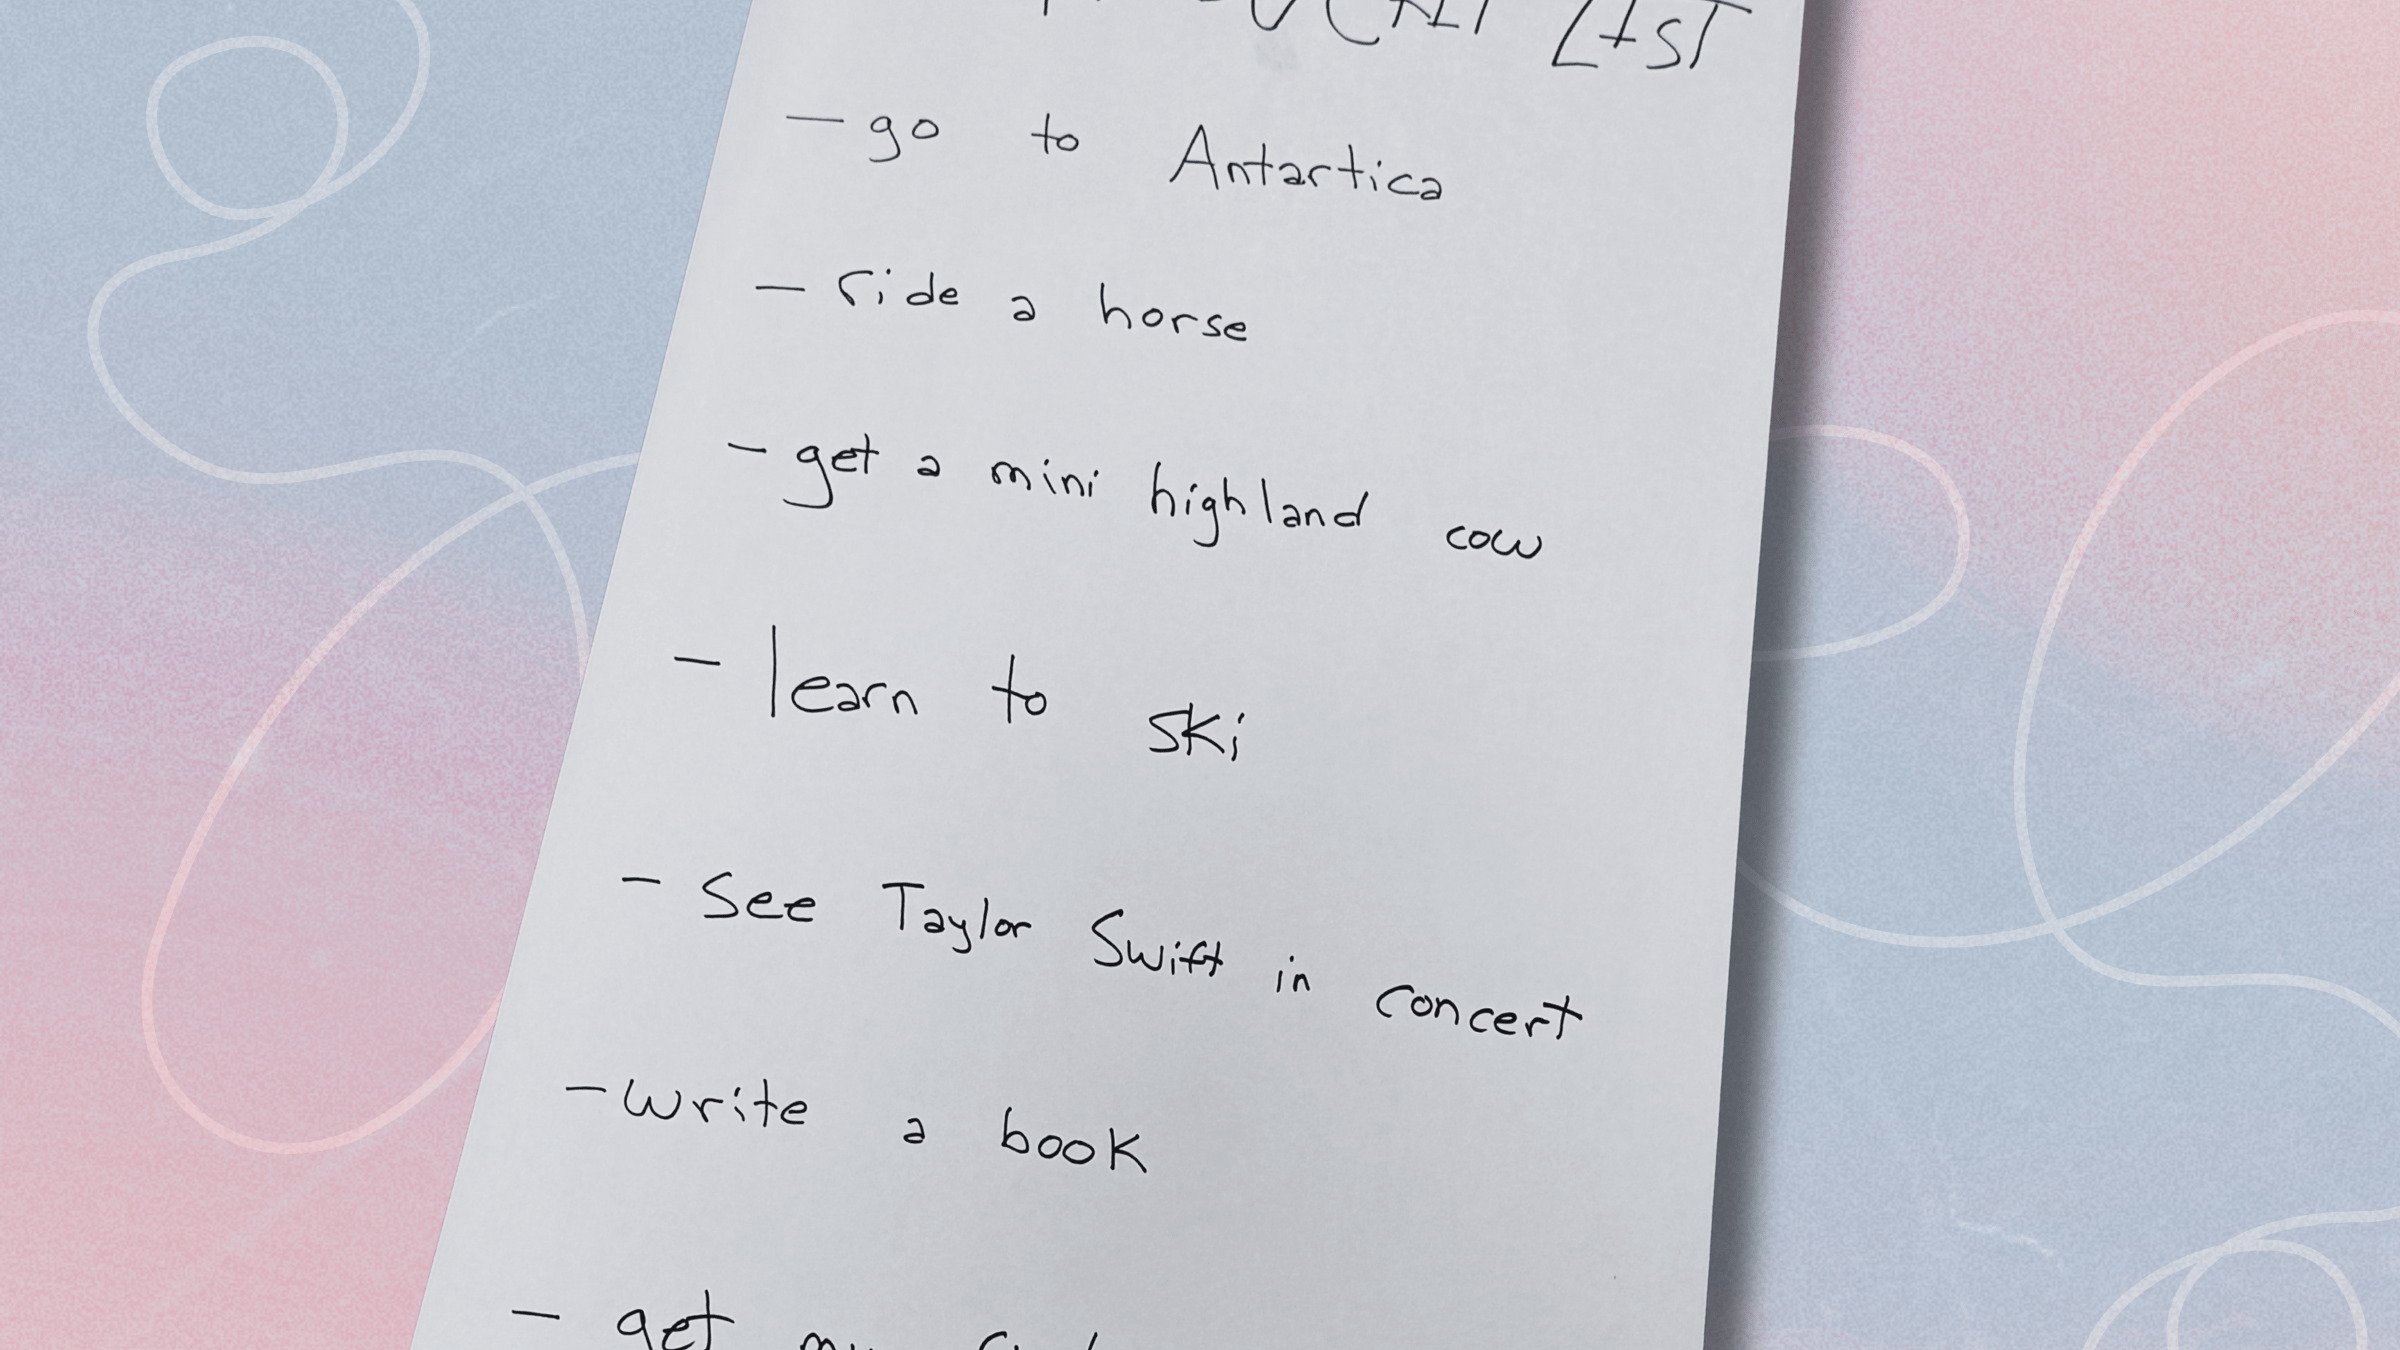 LIST
- go to Antartica
- ride a horse
- get a mini highland cow
- learn to ski
- see Taylor Swift in concert
- write a book
- get my